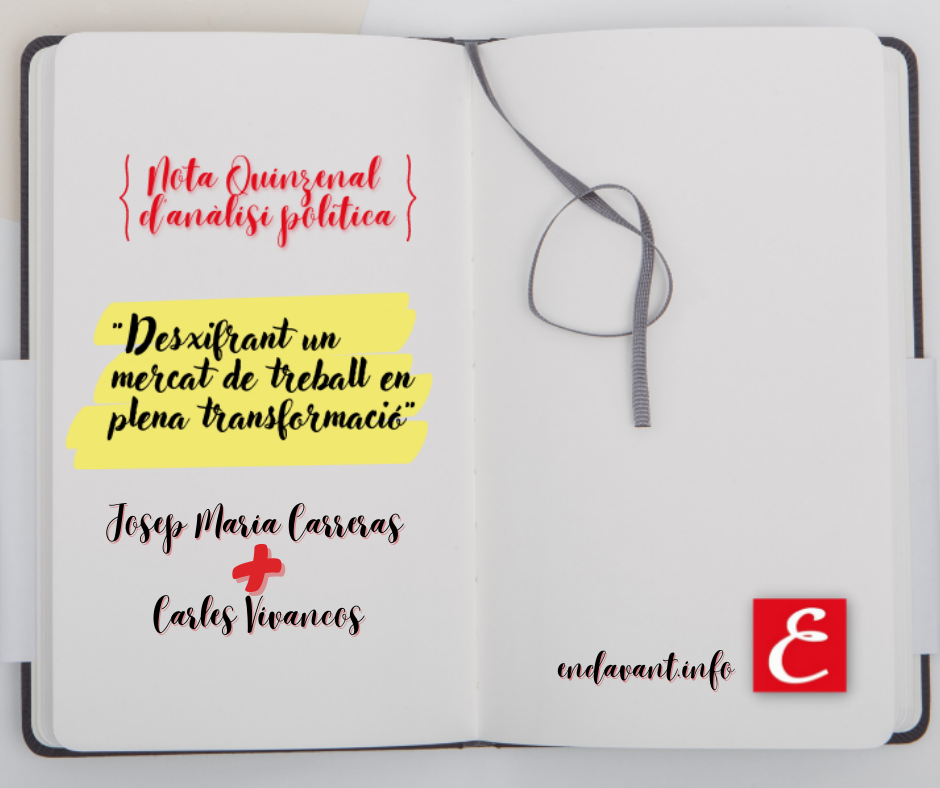 { Nota Quinzenal
d'anàlisi política }
"Desxifrant un
mercat de treball en
plena transformació"
Josep Maria Carreras
+
Carles Vivancos
endavant.info
E